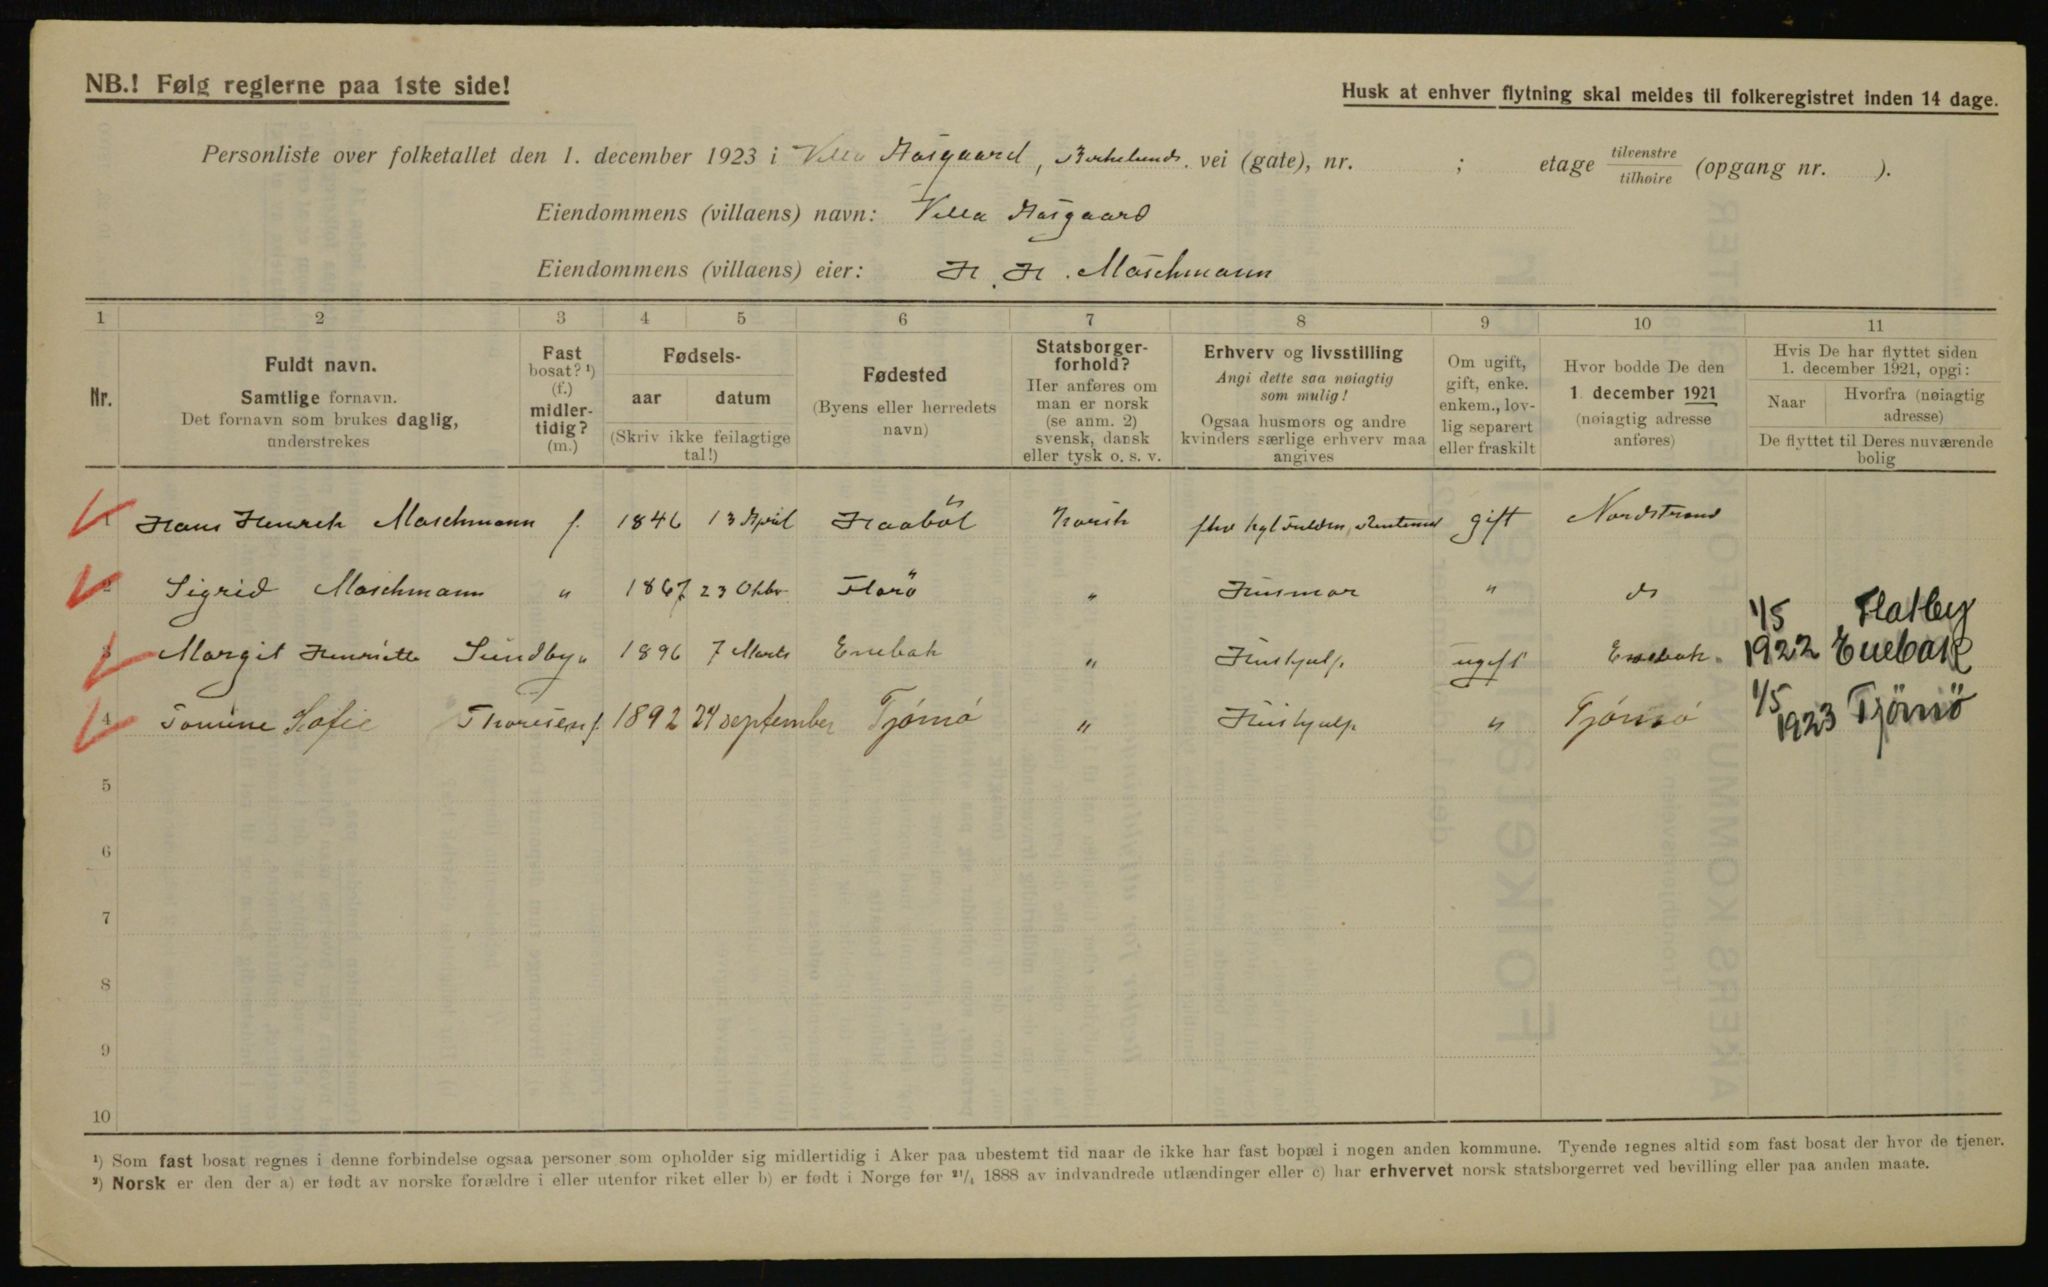 NB.! Følg reglerne paa 1ste side!
Husk at enhver flytning skal meldes til folkeregistret inden 14 dage.
Personliste over folketallet den 1. december 1923 i Villa Aasgaard, Birkelunds vei (gate), nr. ; etage tilvenstre tilhøire (opgang nr. ).
Eiendommens (villaens) navn: Villa Aasgaard
Eiendommens (villaens) eier: H. H. Maschmann
1 2 3 4 5 6 7 8 9 10 11
Nr.
Fuldt navn.
Samtlige fornavn.
Det fornavn som brukes daglig,
understrekes
Fast
bosat? ¹)
(f.)
midler-
tidig?
(m.)
Fødsels-
aar datum
(Skriv ikke feilagtige
tal!)
Fødested
(Byens eller herredets
navn)
Statsborger-
forhold?
Her anføres om
man er norsk
(se anm. 2)
svensk, dansk
eller tysk o. s. v.
Erhverv og livsstilling
Angi dette saa nøiagtig
som mulig!
Ogsaa husmors og andre
kvinders særlige erhverv maa
angives
Om ugift,
gift, enke.
enkem., lov-
lig separert
eller fraskilt
Hvor bodde De den
1. december 1921
(nøiagtig adresse
anføres)
Hvis De har flyttet siden
1. december 1921, opgi:
Naar
Hvorfra (nøiagtig
adresse)
De flyttet til Deres nuværende
bolig
1 Hans Henrik Maschmann f. 1846 13 April Haaböl Norsk gift Nordstrand
2 Sigrid Maschmann " 1867 23 Oktbr Florö " Husmor " do
3 Margit Henriette Sundby " 1896 7 Marts Enebak " Hushjælp ugift Enebak 1/5 1922 Flatby Enebak
4 Tomine Sofie Thoresen f. 1892 24 september Tjömö " Hushjælp " Tjömö 1/5 1923 Tjömö
5
6
7
8
9
10
¹) Som fast bosat regnes i denne forbindelse ogsaa personer som opholder sig midlertidig i Aker paa ubestemt tid naar de ikke har fast bopæl i nogen anden kommune. Tyende regnes altid som fast bosat der hvor de tjener.
²) Norsk er den der a) er født av norske forældre i eller utenfor riket eller b) er født i Norge før ²¹/₄ 1888 av indvandrede utlændinger eller c) har erhvervet norsk statsborgerret ved bevilling eller paa anden maate.